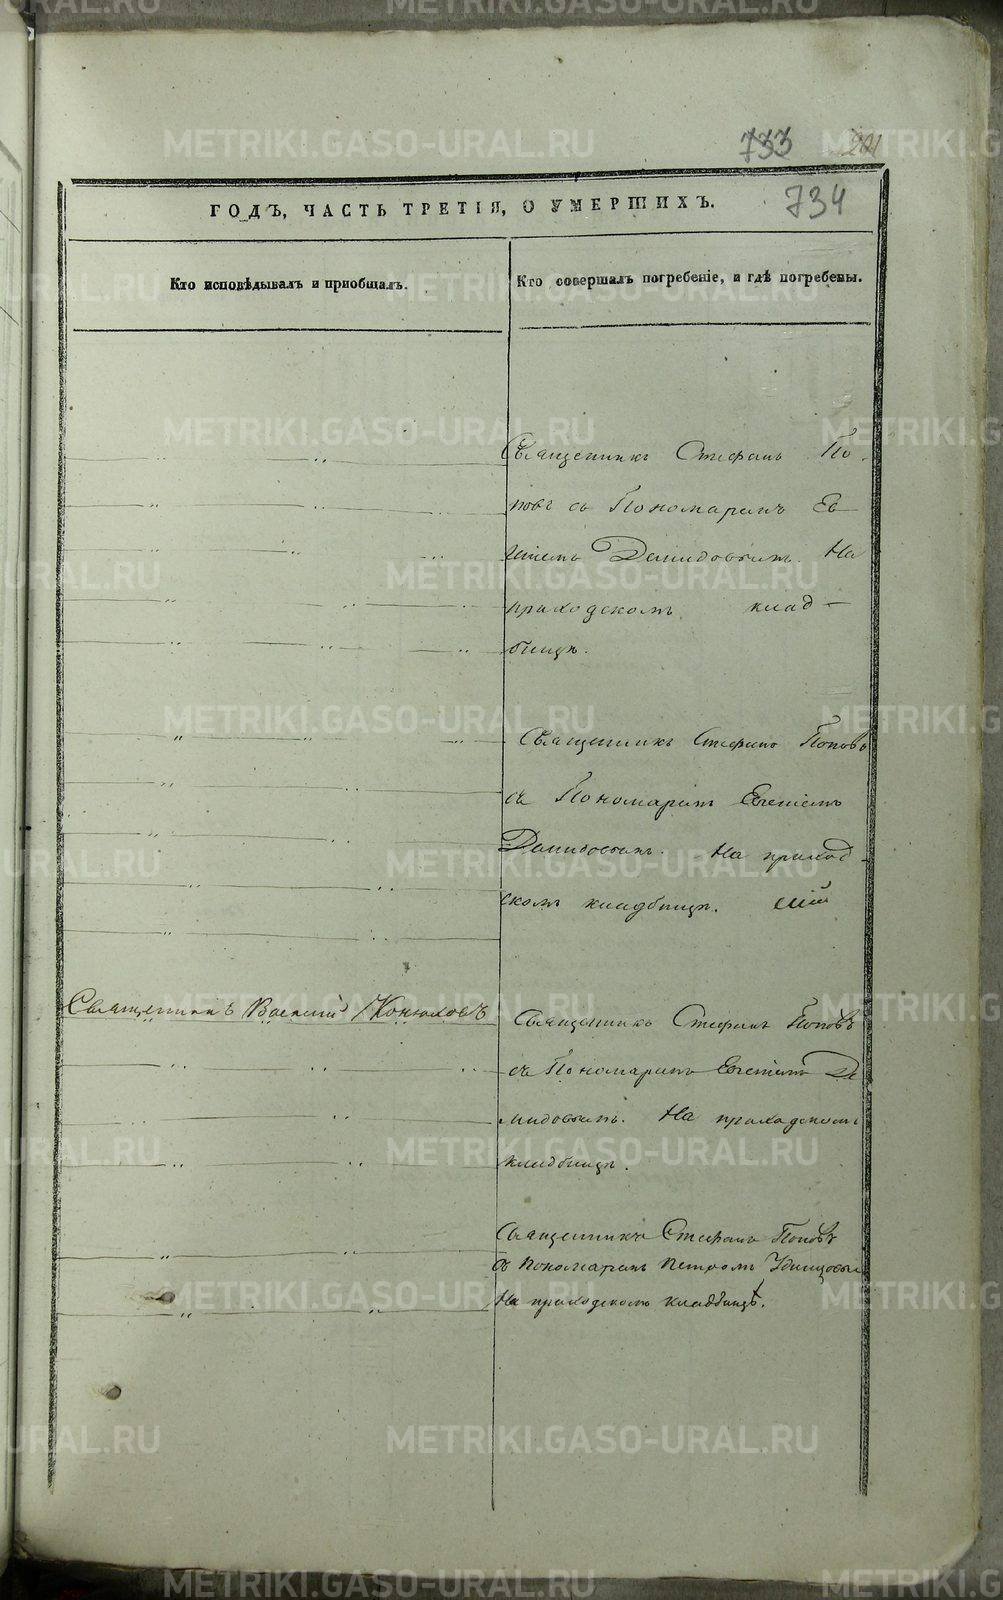 METRIKI.GASO-URAL.RU
733 201
734
ГОДЪ, ЧАСТЬ ТРЕТІЯ, О УМЕРШИХЪ.
Кто исповѣдывалъ и пріобщалъ.
Кто совершалъ погребеніе, и гдѣ погребены.
Священникъ Стефанъ По-
повъ съ Пономаремъ Ев-
геніемъ Демидовымъ. На
приходскомъ клад-
бищѣ.
Священникъ Стефанъ Поповъ
съ Пономаремъ Евгеніемъ
Демидовымъ. На приход-
скомъ кладбищѣ.
Священникъ Василій Конюховъ
Священникъ Стефанъ Поповъ
съ Пономаремъ Евгеніемъ Де
мидовымъ. На приходскомъ
кладбищѣ.
Священникъ Стефанъ Поповъ
съ пономаремъ Петромъ Удинцовым
На приходскомъ кладбищѣ.